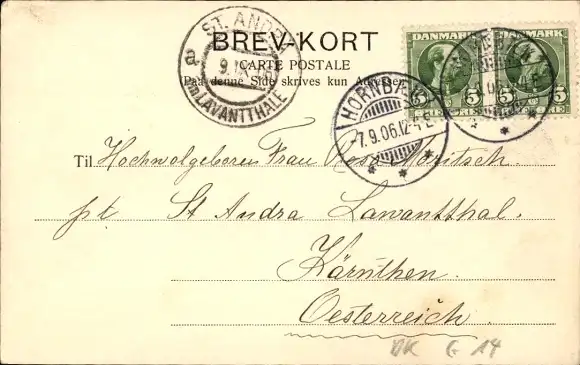 BREV-KORT
CARTE POSTALE
Paa denne Side skrives kun Adressen
ST. ANDRÄ
9
LAVANTTHALE
DANMARK DANMARK
5 5 5
ØRE
HORNBÆK
-7.9.06.12-4E
Til Hochwolgeboren Frau Rosa Moritsch
pt St Andra Lawantthal.
Kärnthen.
Oesterreich.
G 14